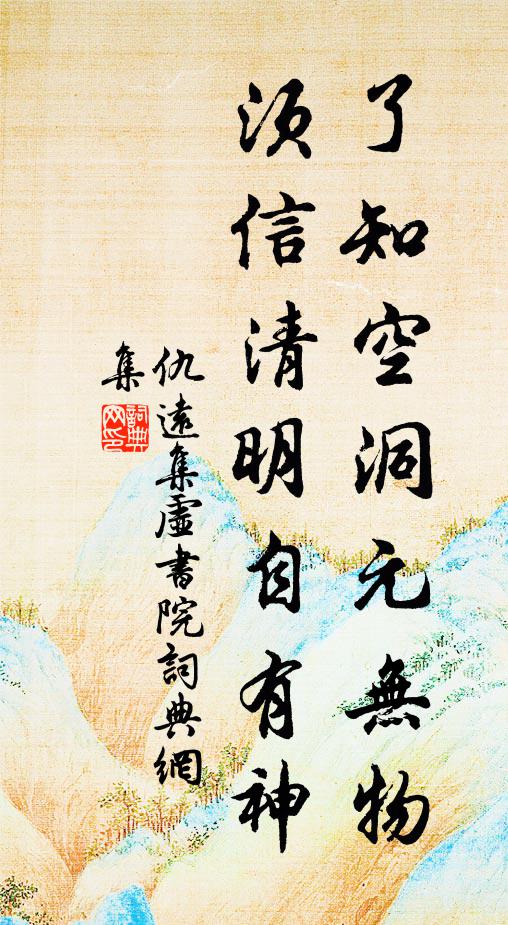 了知空洞元無物
須信清明自有神
仇遠集虛書院詞典網
集
詞典網印